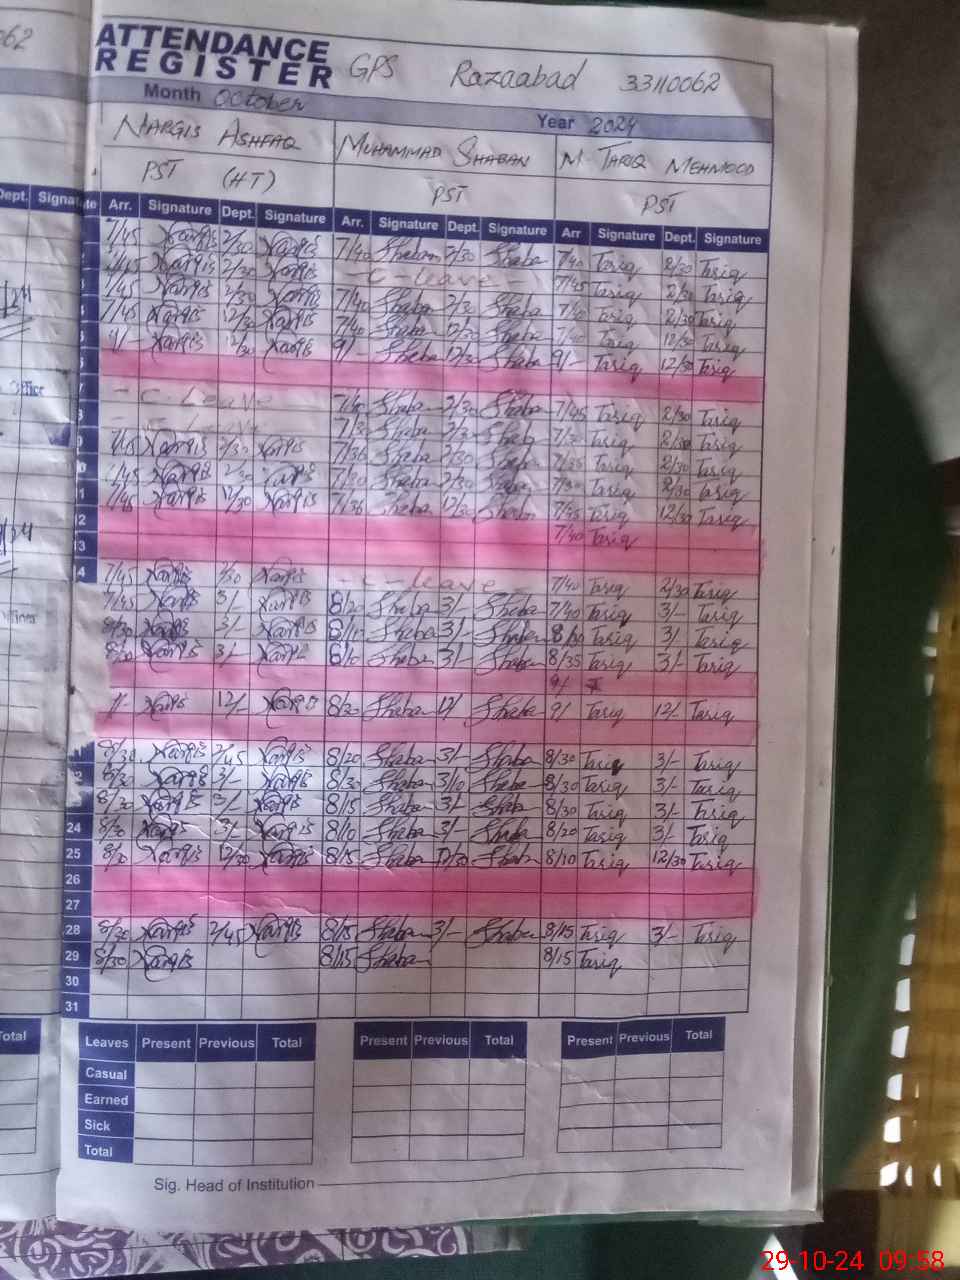 062
ATTENDANCE
REGISTER
GPS Razaabad 33110062
Month October
Year 2024
NARGIS ASHFAQ MUHAMMAD SHABAN M. TARIQ MEHMOOD
PST (HT) PST PST
Dept. Signature
Arr. Signature Dept. Signature Arr. Signature Dept. Signature Arr Signature Dept. Signature
7/45 Nargis 2/30 Nargis 7/40 Shaban 2/30 Shaba 7/40 Tariq 2/30 Tariq
7/45 Nargis 2/30 Nargis - C - leave - 7/45 Tariq 2/30 Tariq
7/45 Nargis 2/30 Nargis 7/40 Shaba 2/30 Shaba 7/40 Tariq 2/30 Tariq
7/45 Nargis 12/30 Nargis 7/40 Shaba 12/30 Shaba 7/40 Tariq 12/30 Tariq
Nargis 12/30 Nargis 9/- Shaba 12/30 Shaba 9/- Tariq 12/30 Tariq
- C - Leave 7/40 Shaba 2/30 Shaba 7/45 Tariq 2/30 Tariq
Leave 7/30 Shaba 2/30 Shaba 7/30 Tariq 2/30 Tariq
7/45 Nargis 2/30 Nargis 7/36 Shaba 2/30 Shaba 7/35 Tariq 2/30 Tariq
7/45 Nargis 2/30 Nargis 7/30 Shaba 2/30 Shaba 7/30 Tariq 2/30 Tariq
7/45 Nargis 12/30 Nargis 7/36 Shaba 12/30 Shaba 7/35 Tariq 12/30 Tariq
7/40 Tariq
7/45 Nargis 2/30 Nargis - C - leave - 7/40 Tariq 2/30 Tariq
7/45 Nargis 3/- Nargis 8/20 Shaba 3/- Shaba 7/40 Tariq 3/- Tariq
8/30 Nargis 3/- Nargis 8/10 Shaba 3/- Shaban 8/30 Tariq 3/- Tariq
8/30 Nargis 3/- Nargis 8/10 Shaban 3/- Shaban 8/35 Tariq 3/- Tariq
9/
Nargis 12/- Nargis 8/30 Shaban 12/ Shaba 9/ Tariq 12/- Tariq
8/30 Nargis 2/45 Nargis 8/20 Shaba 3/- Shaba 8/30 Tariq 3/- Tariq
8/30 Nargis 3/- Nargis 8/30 Shaban 3/10 Shaba 8/30 Tariq 3/- Tariq
8/30 Nargis 3/- Nargis 8/15 Shaba 3/- Shaba 8/30 Tariq 3/- Tariq
24 8/30 Nargis 3/- Nargis 8/10 Shaba 3/- Shaba 8/20 Tariq 3/- Tariq
25 Nargis 12/30 Nargis 8/15 Shaba 12/30 Shaba 8/10 Tariq 12/30 Tariq
26
27
28 8/30 Nargis 2/45 Nargis 8/15 Shaban 3/- Shaban 8/15 Tariq 3/- Tariq
29 8/30 Nargis 8/15 Shaban 8/15 Tariq
30
31
Total
Leaves Present Previous Total Present Previous Total Present Previous Total
Casual
Earned
Sick
Total
Sig. Head of Institution
29-10-24 09:58